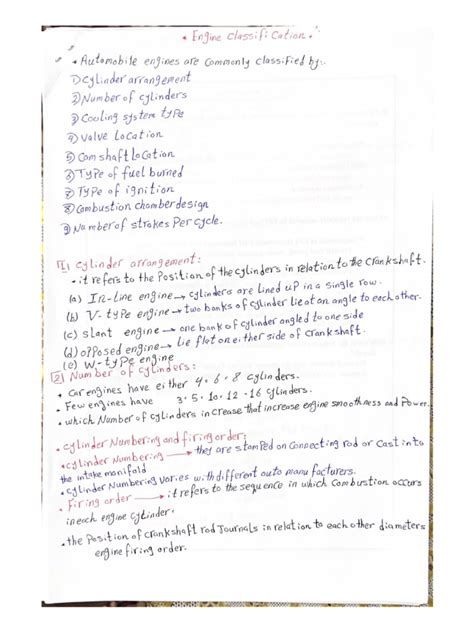 • Engine classification •
• Automobile engines are commonly classified by:-
1) Cylinder arrangement
2) Number of cylinders
3) Cooling system type
4) Valve location
5) Cam shaft location
6) Type of fuel burned
7) Type of ignition
8) Combustion chamber design
9) Number of strokes Per cycle.
[1] Cylinder arrangement:
• it refers to the Position of the cylinders in relation to the crankshaft.
(a) In-line engine → cylinders are lined up in a single row.
(b) V-type engine → two banks of cylinder lie at an angle to each other.
(c) slant engine → one bank of cylinder angled to one side
(d) opposed engine → lie flat on either side of crankshaft.
(e) W-type engine
[2] Number of cylinders:
• car engines have either 4 • 6 • 8 cylinders.
• Few engines have 3 • 5 • 10 • 12 • 16 cylinders.
• which Number of cylinders increase that increase engine smoothness and Power.
• cylinder Numbering and firing order:
• cylinder Numbering → they are stamped on connecting rod or cast into
the intake manifold
• cylinder Numbering varies with different auto manufacturers.
• Firing order → it refers to the sequence in which combustion occurs
in each engine cylinder.
• the Position of crankshaft rod Journals in relation to each other diameters
engine firing order.